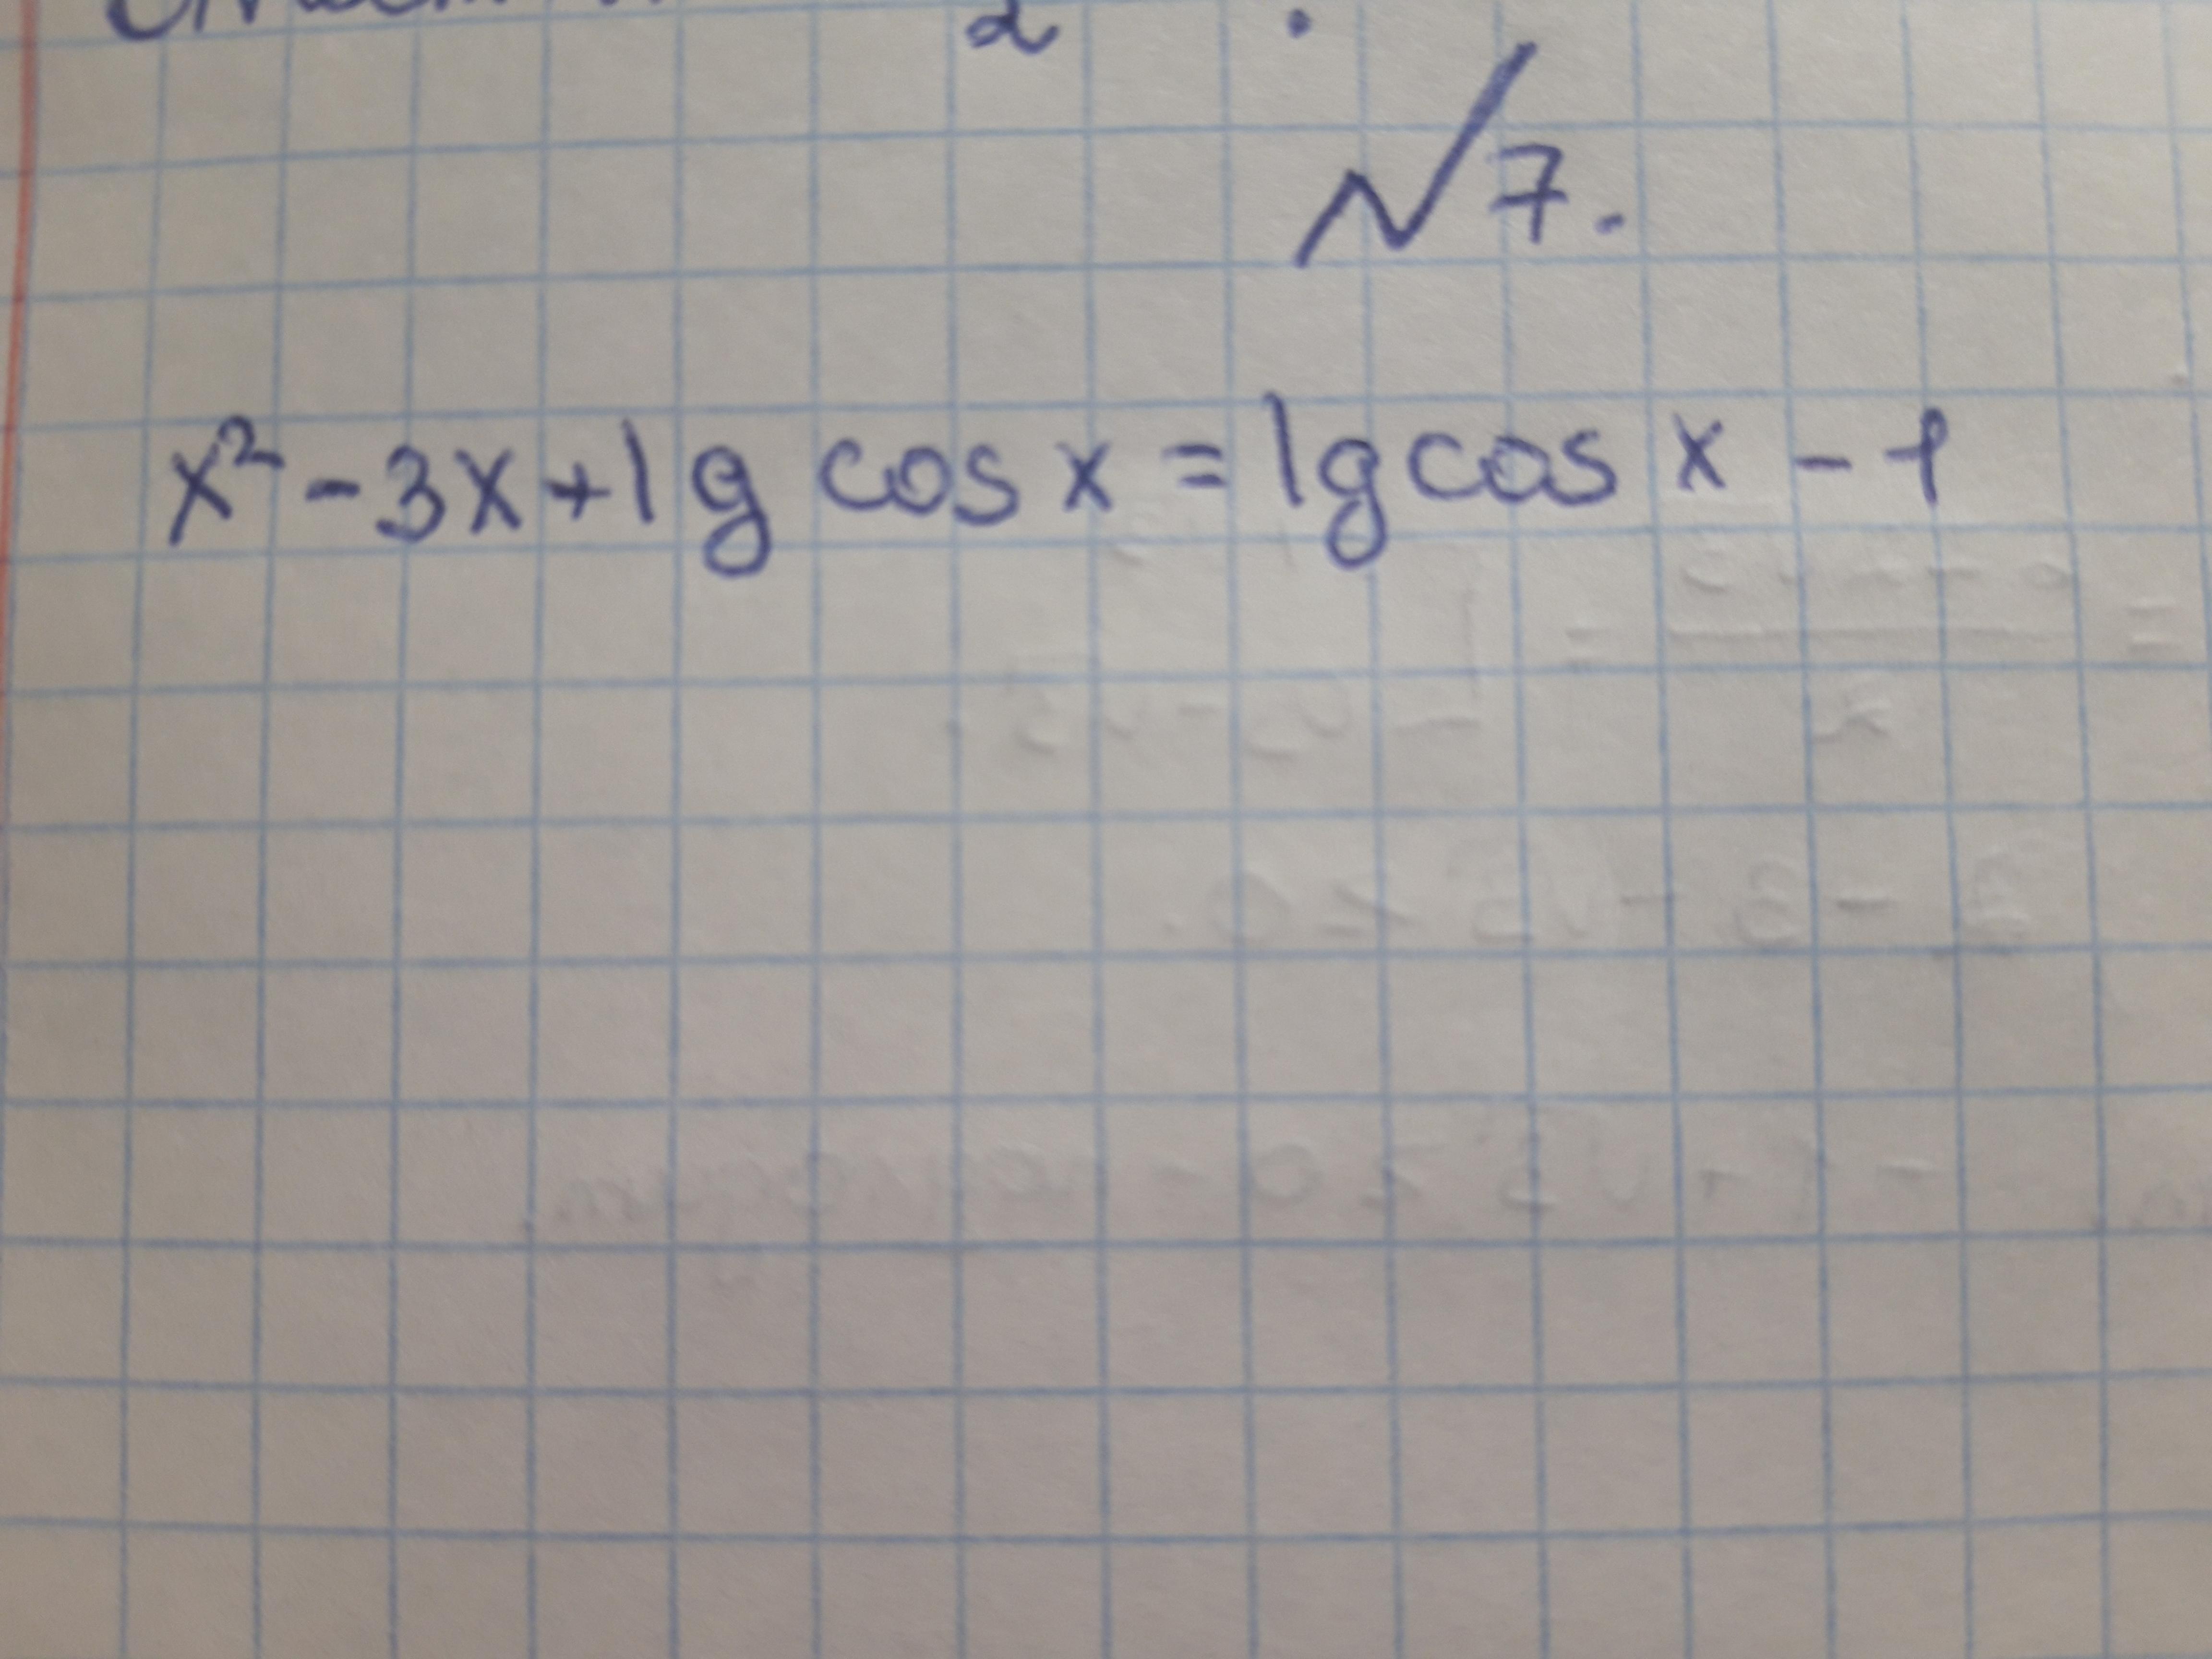 2 .
№7.
x² - 3x + lg cos x = lg cos x - 1